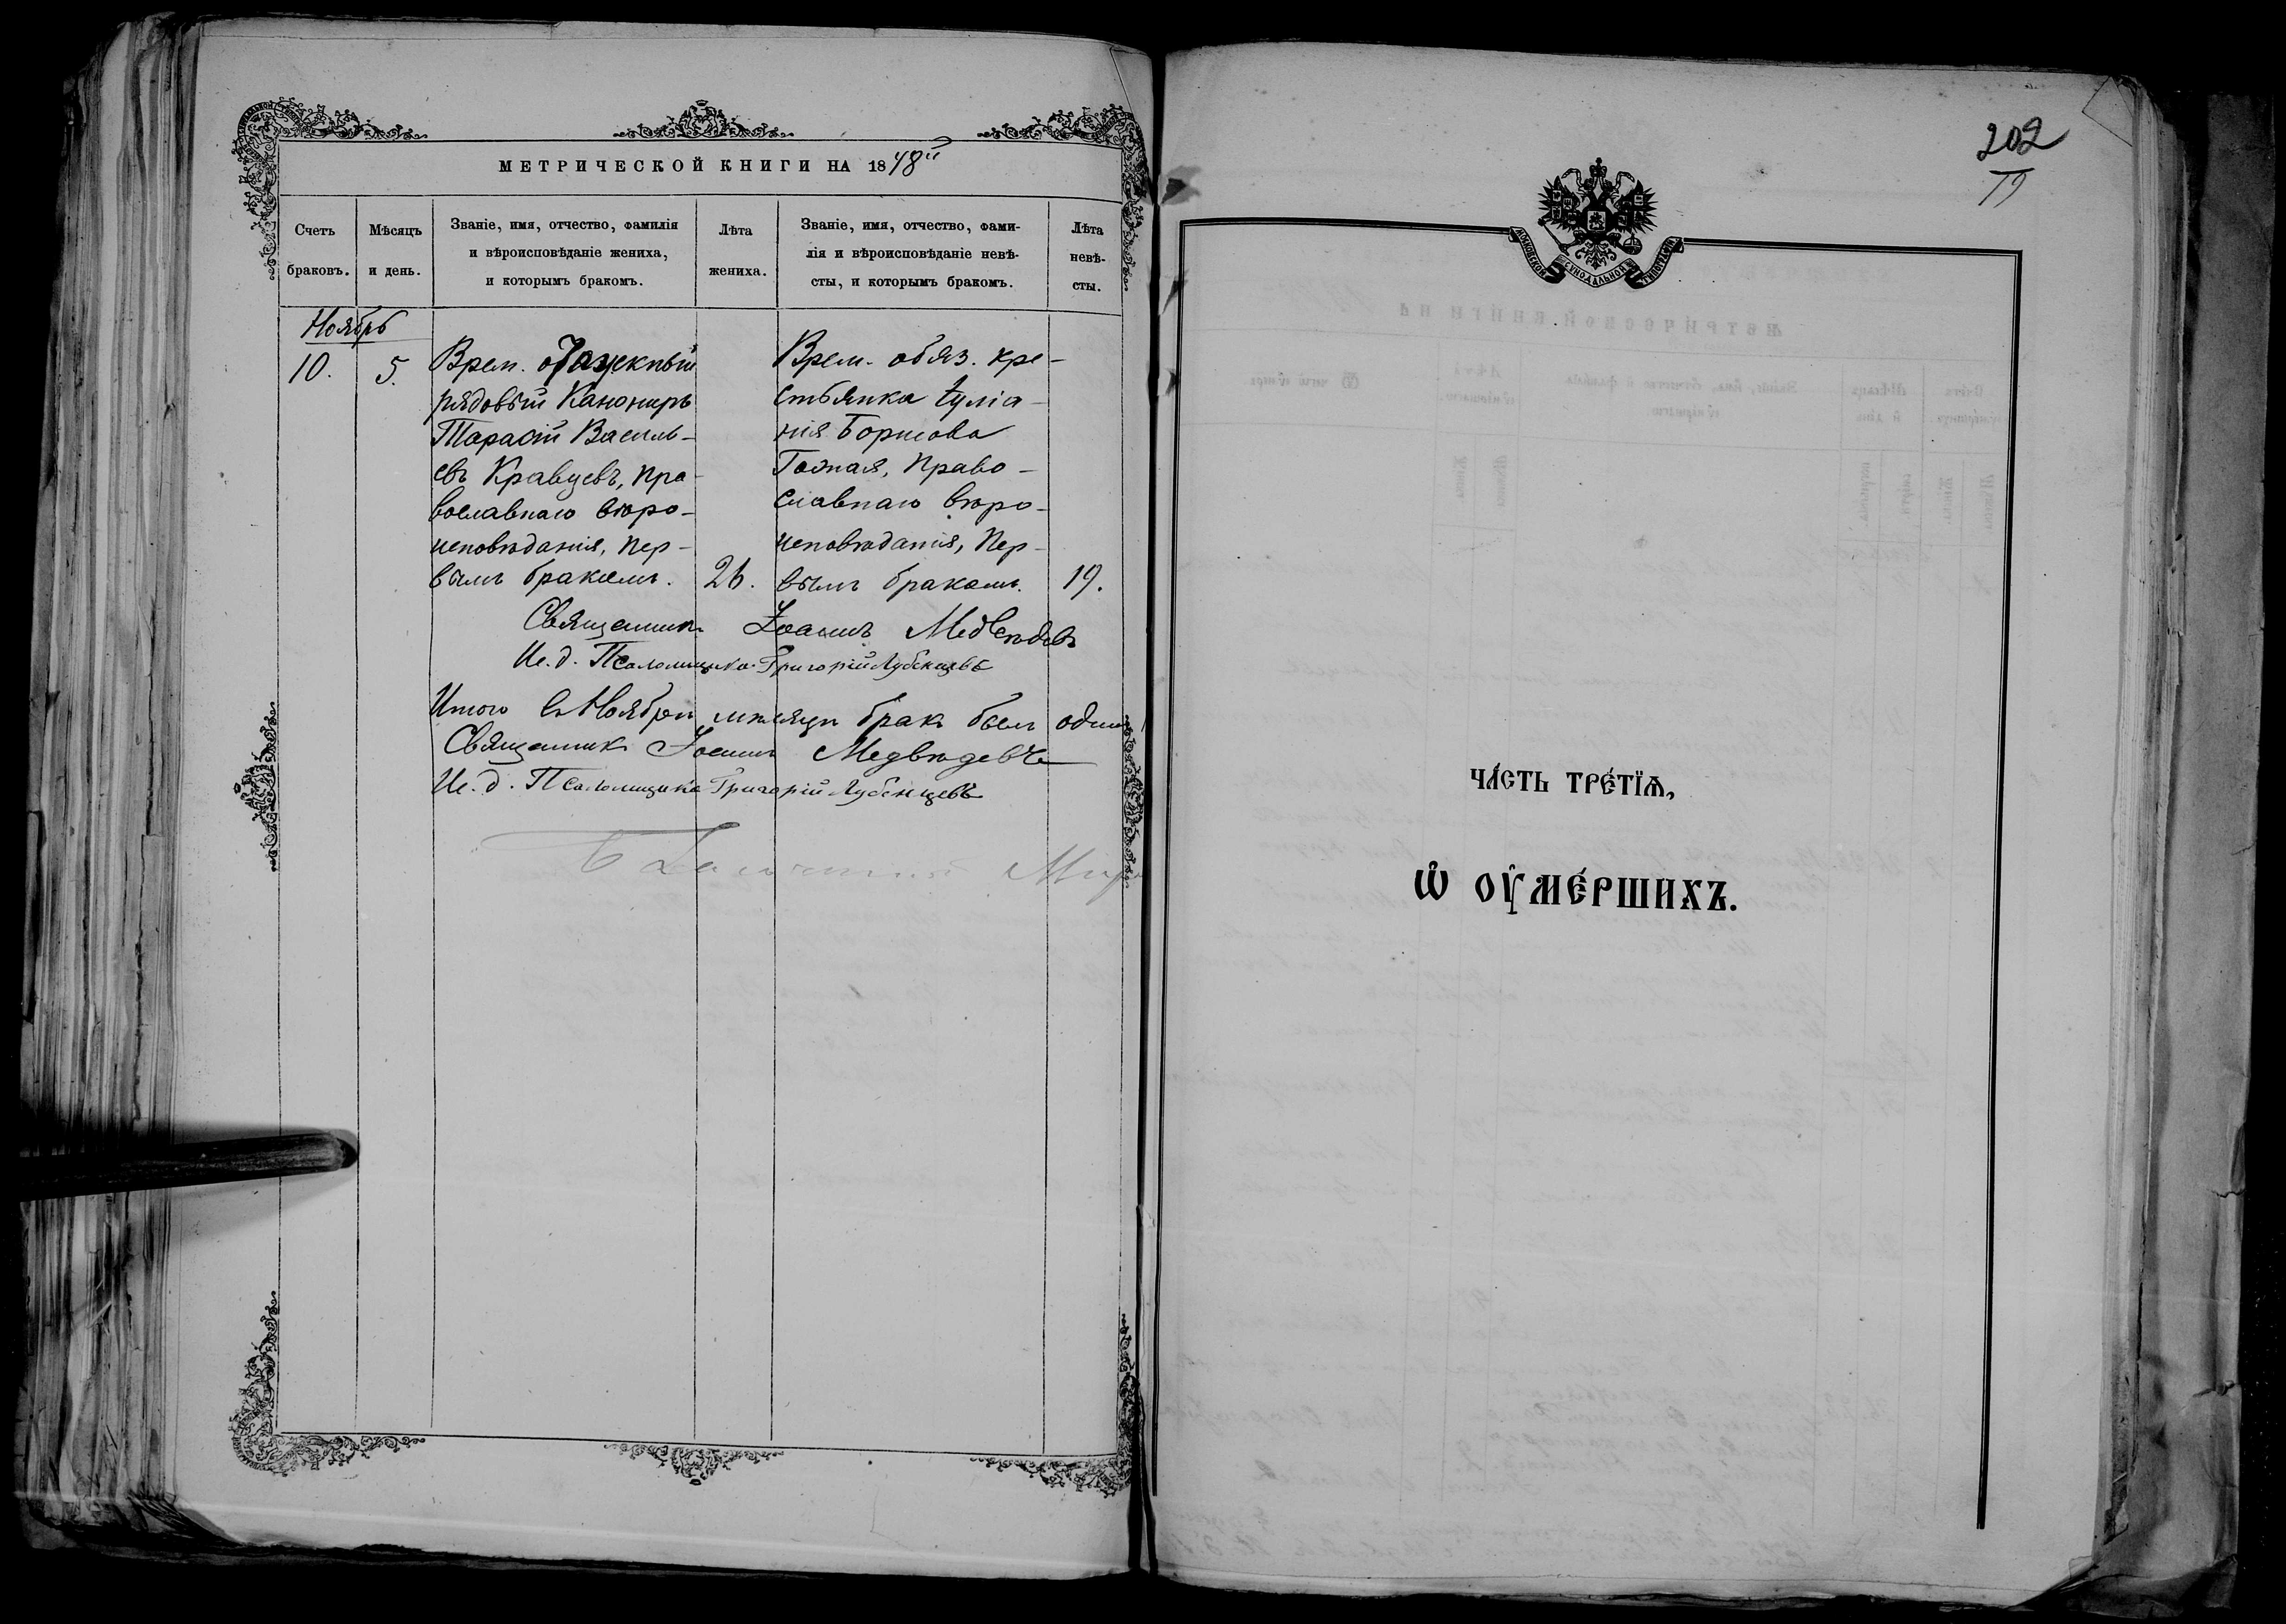 МЕТРИЧЕСКОЙ КНИГИ НА 1878й
Счетъ браковъ.
Мѣсяцъ и день.
Званіе, имя, отчество, фамилія
и вѣроисповѣданіе жениха,
и которымъ бракомъ.
Лѣта жениха.
Званіе, имя, отчество, фами-
лія и вѣроисповѣданіе невѣ-
сты, и которымъ бракомъ.
Лѣта невѣ-
сты.
Ноябрь
10.
5.
Врем. отпускный
рядовый Канониръ
Тарасій Василь-
евъ Кравцевъ, пра-
вославнаго вѣро-
исповѣданія, пер-
вымъ бракомъ.
26.
Врем. обяз. кре-
стьянка Іуліа-
нія Борисова
Православ-
славнаго вѣро-
исповѣданія, пер-
вымъ бракомъ.
19.
Священникъ Іоаннъ Медвѣдевъ
Ис. д. Псаломщика Григорій Лубенцевъ
Итого въ Ноябрѣ мѣсяцѣ бракъ былъ одинъ
Священникъ Іоаннъ Медвѣдевъ
Ис. д. Псаломщика Григорій Лубенцевъ
202
МОСКОВСКОЙ СѴНОДАЛЬНОЙ ТИПОГРАФІИ
ЧА́СТЬ ТРЕ́ТЇѦ,
Ѡ҆ ОУ҆МЕ́РШИХЪ.